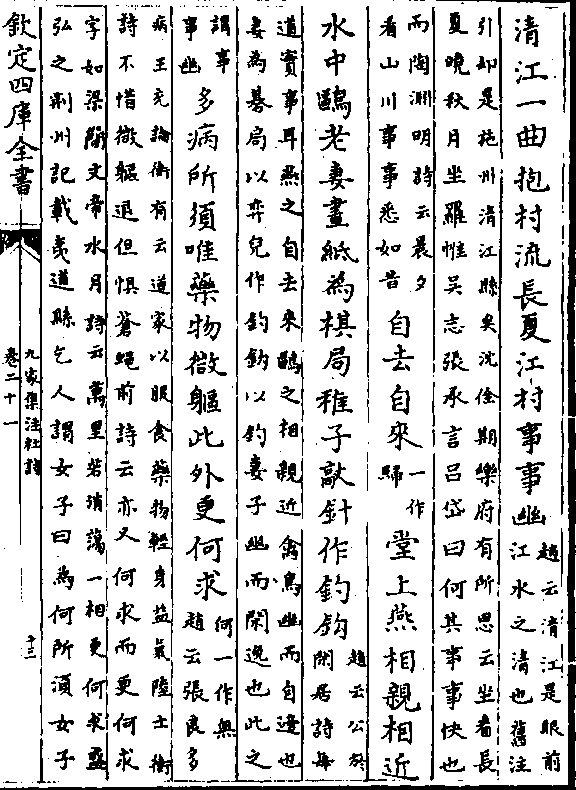 清江一曲抱村流長夏江村事事幽
趙云清江是眼前
江水之清也舊注
引却是施州清江縣矣沈佺期樂府有所思云坐看長
夏晚秋月坐羅惟吳志張承言呂岱曰何其事事快也
而陶淵明詩云晨夕
看山川事事悉如昔
自去自來
一作
歸
堂上燕相親相近
水中鷗老妻畫紙為棋局稚子敲針作釣鈎
趙云公於
閒居詩每
道實事耳燕之自去來鷗之相親近禽鳥幽而自適也
妻為碁局以弈兒作釣鈎以釣妻子幽而閑逸也此之
謂事
事幽
多病所須唯藥物微軀此外更何求
何一作無
趙云張良多
病王充論衡有云道家以服食藥物輕身益氣陸士衡
詩不惜微軀退但懼蒼蠅前詩云亦又何求而更何求
字如梁簡文帝水月詩云萬里若消蕩一相更何求盛
弘之荆州記載夷道縣乞人謂女子曰為何所須女子
欽定四庫全書
九家集注杜詩
卷二十一
十三